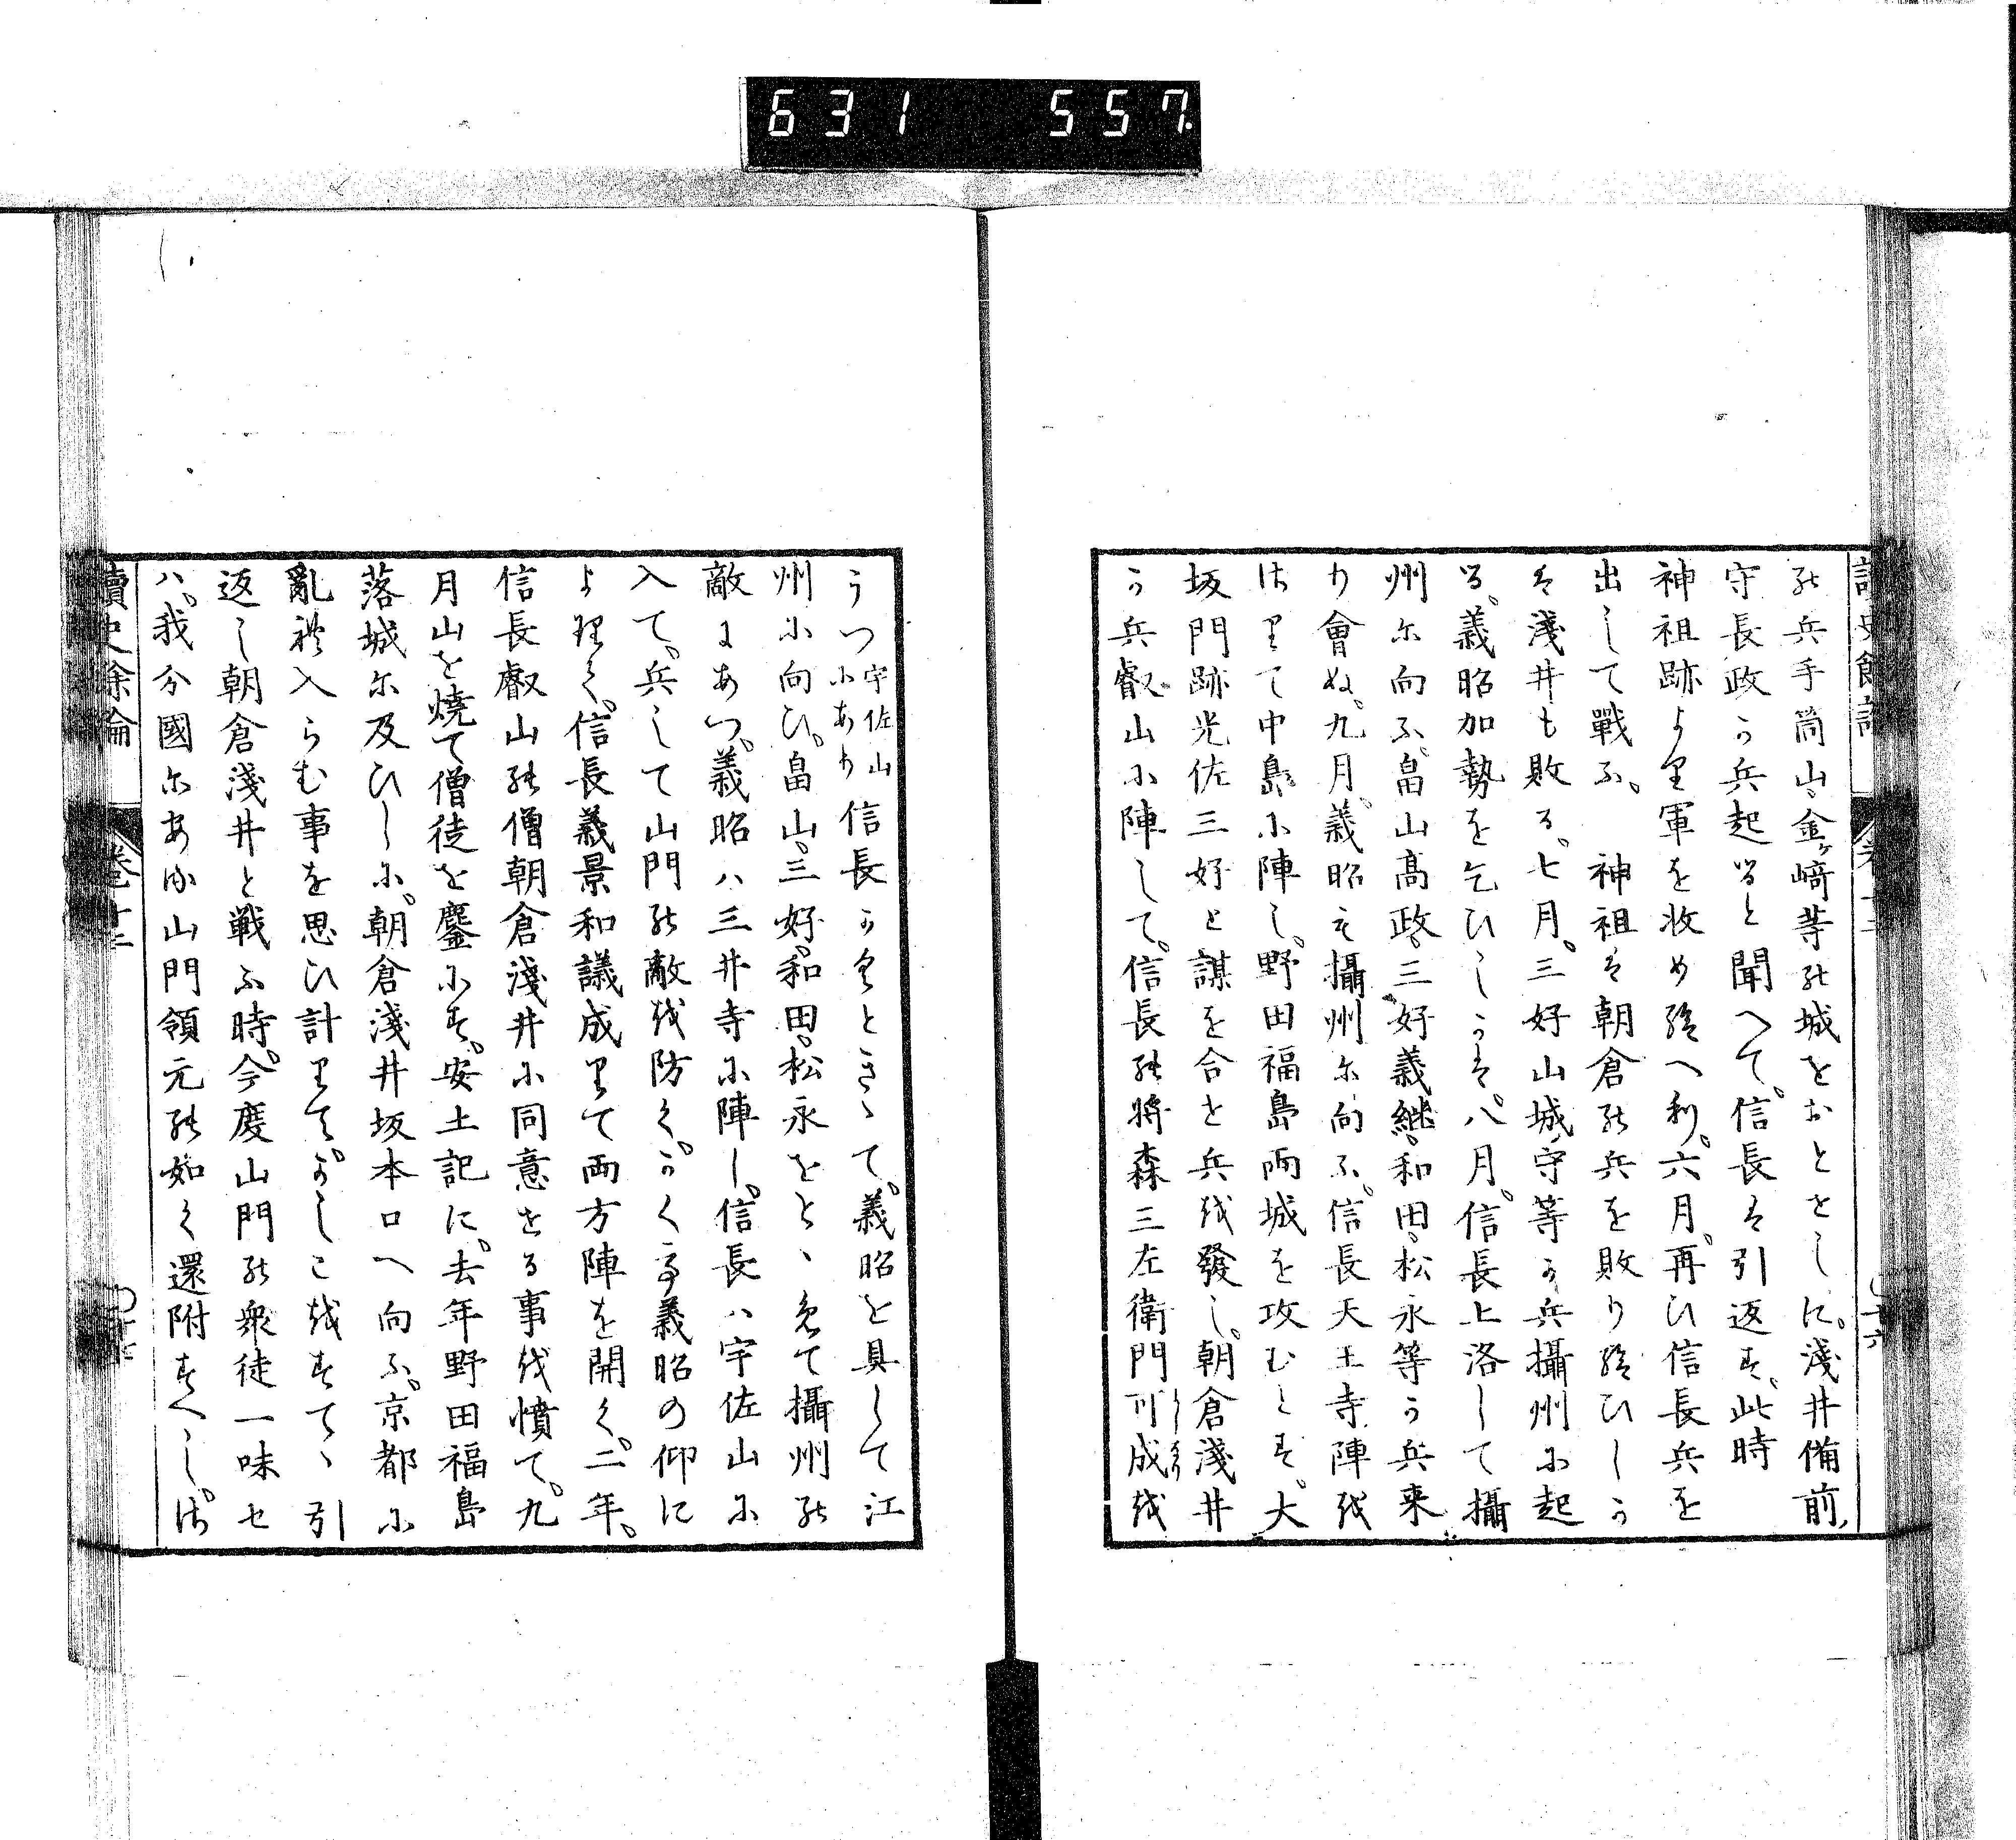 631 557.
の兵手筒山、金ヶ﨑等の城をおとせしに。淺井備前
守長政か兵起ると聞へて。信長は引返す。此時
神祖跡より軍を收め給へ利。六月。再ひ信長兵を
出して戰ふ。　神祖は朝倉の兵を敗り給ひしか
は淺井も敗る。七月。三好山城守等か兵攝州に起
る。義昭加勢を乞ひしかは。八月。信長上洛して攝
州に向ふ。畠山高政、三好義継、和田、松永等か兵来
り會ぬ。九月。義昭も攝州に向ふ。信長天王寺陣を
はりて中島に陣し。野田福島両城を攻むとす。大
坂門跡光佐三好と謀を合せ兵を發し。朝倉淺井
か兵叡山に陣して。信長の將森三左衛門可成を
うつ宇佐山にあり信長かくときゝて。義昭を具して江
州に向ひ。畠山。三好。和田。松永をとゝめて攝州の
敵にあつ。義昭ハ三井寺に陣し。信長ハ宇佐山に
入て。兵して山門の敵を防く。かくて義昭の仰に
より。信長義景和議成りて両方陣を開く。二年。
信長叡山の僧朝倉淺井に同意せる事を憤て。九
月山を燒て僧徒を鏖にす。安土記に。去年野田福島
落城に及ひしに。朝倉淺井坂本口へ向ふ。京都に
亂れ入らむ事を思ひ計りて。かしこをすてゝ引
返し朝倉淺井と戰ふ時。今度山門の衆徒一味セ
ハ。我分國にある山門領元の如く還附すへし。は
讀史餘論
卷十二